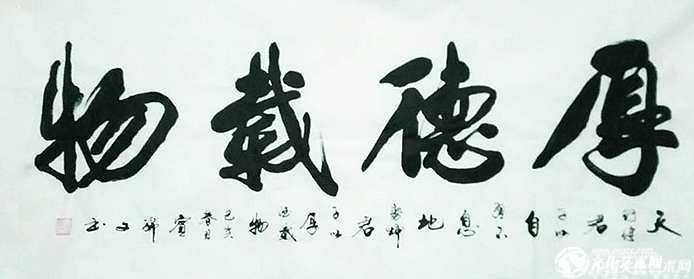 厚德載物
天行健君子以自強不息地勢坤君子以厚德載物己亥春月
文化艺术网
www.orgcc.com